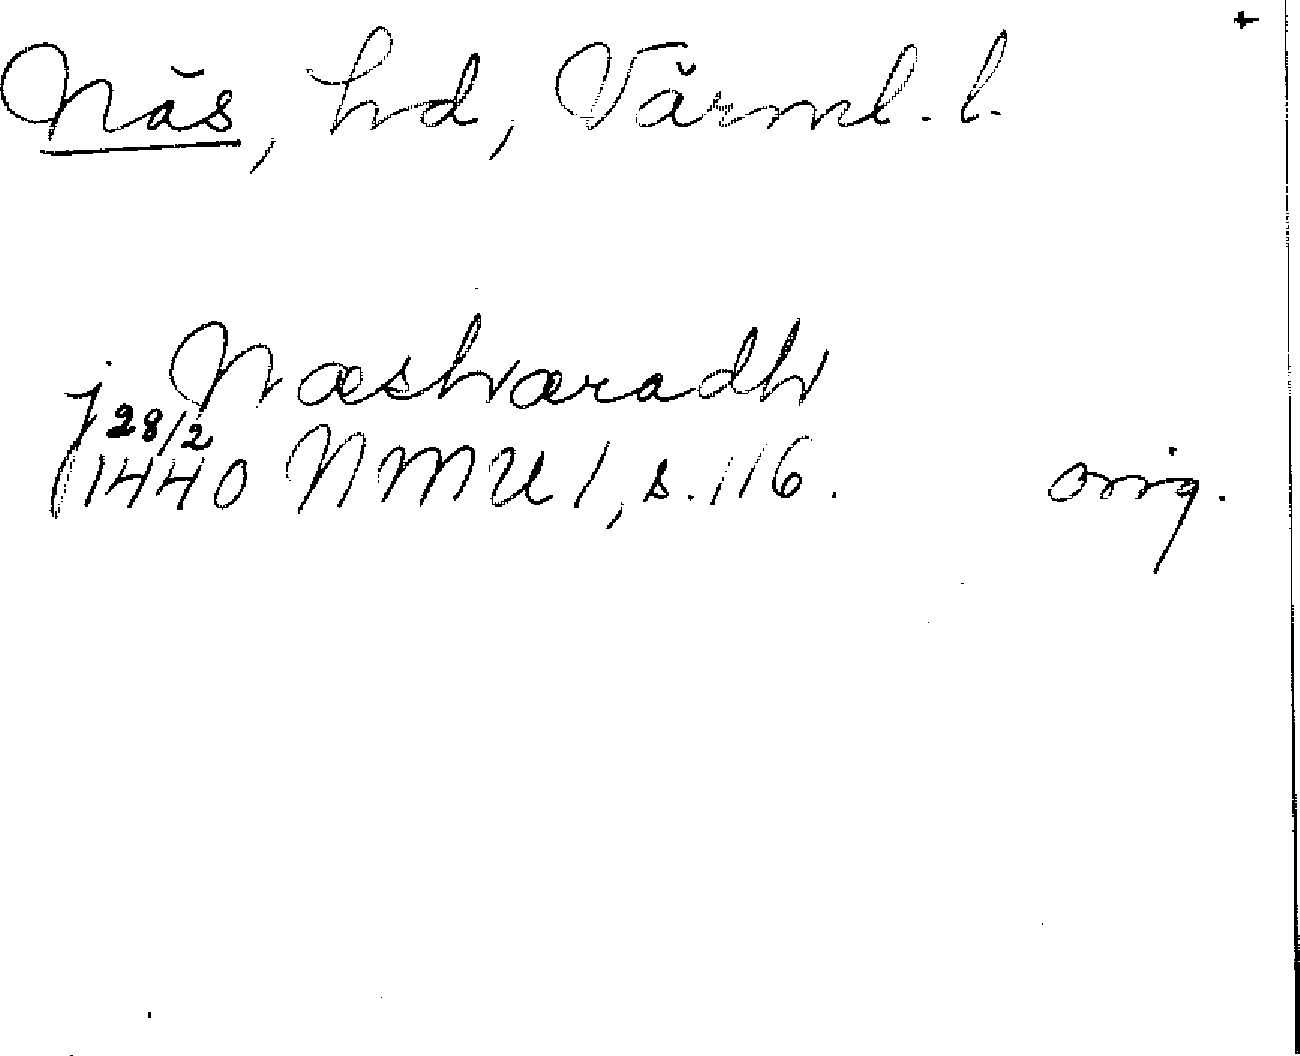 +
Näs, hd, Värml. l.
j Næshæradh
28/2
1440 NMU 1, s. 116. orig.